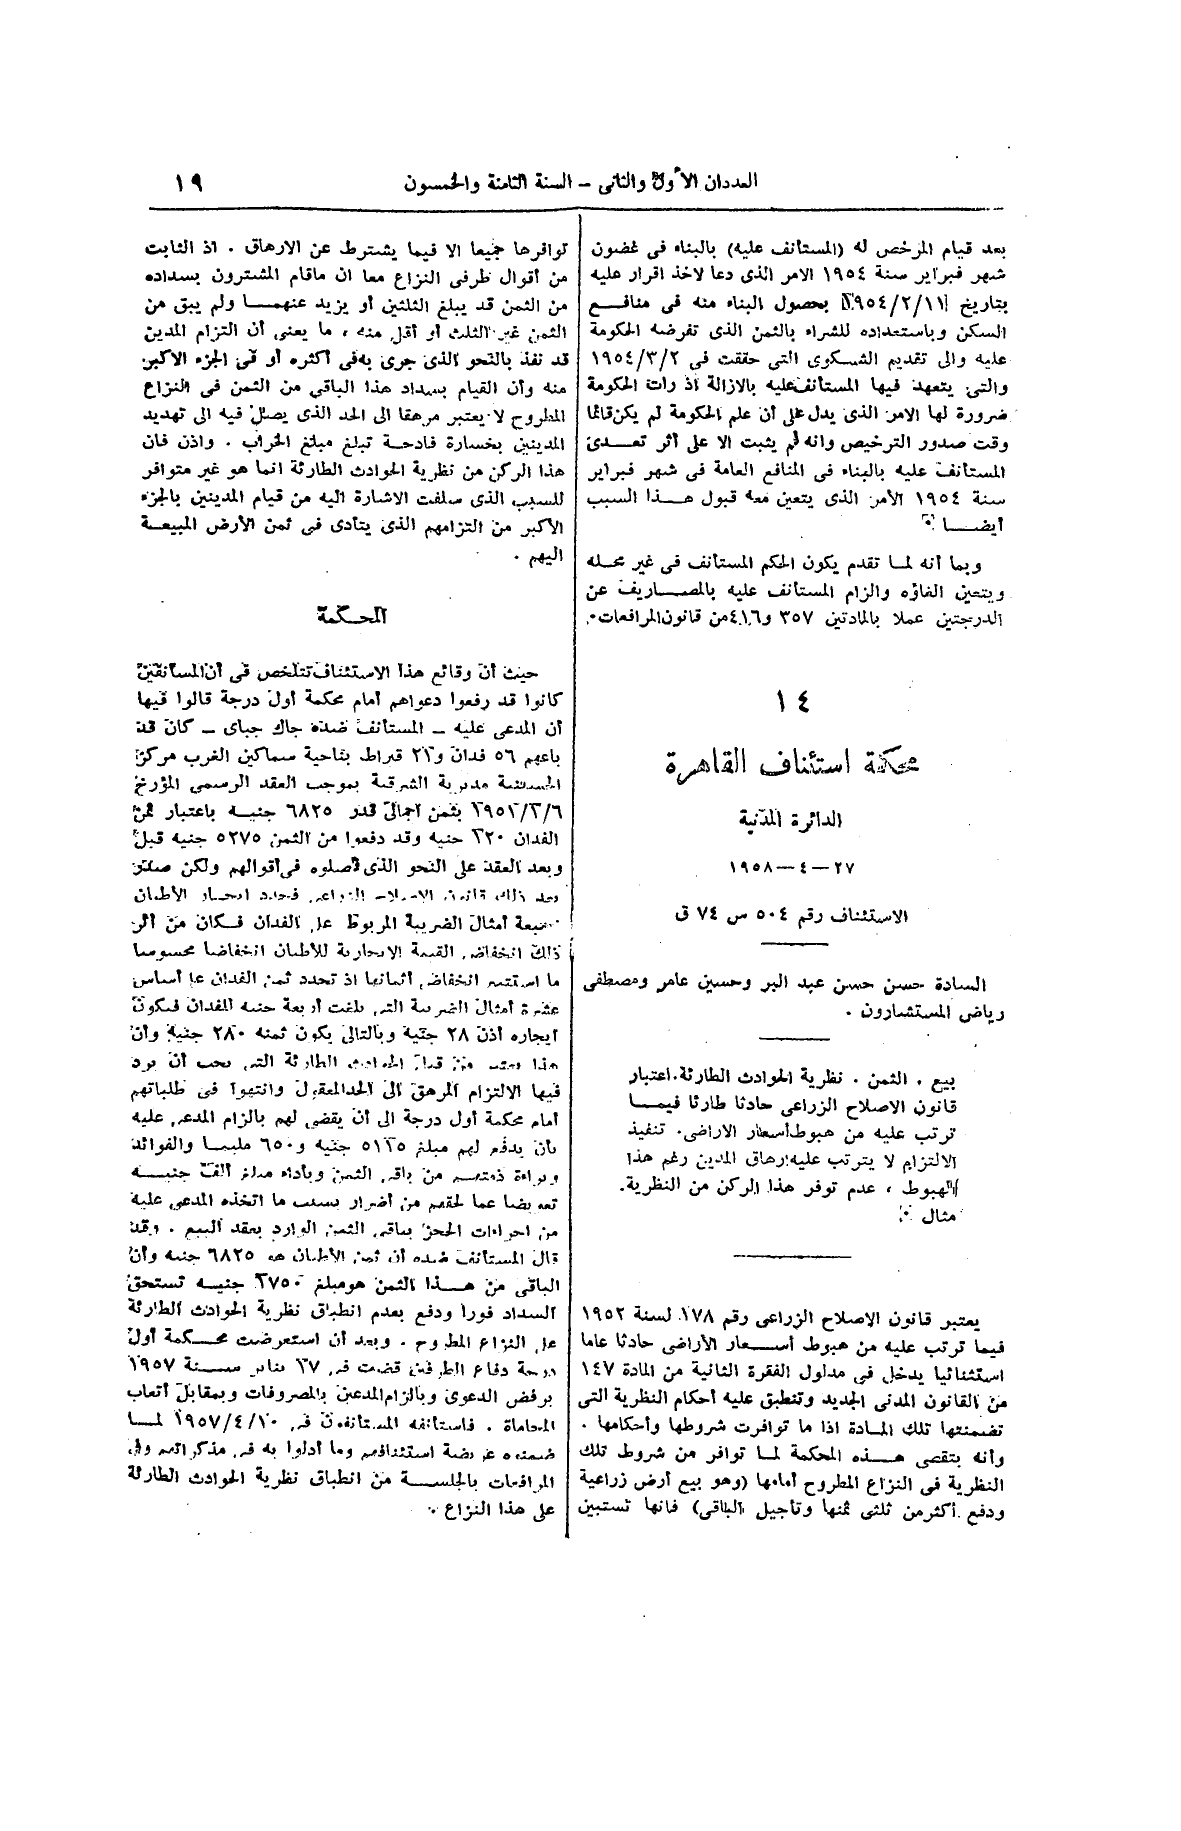 العددان الأول والثانى – السنة الثامنة والخمسون
١٩
بعد قيام المرخص له (المستانف عليه) بالبناء فى غضون
شهر فبراير سنة ١٩٥٤ الامر الذى دعا لاخذ اقرار عليه
بتاريخ ١٩٥٤/٢/١١ بحصول البناء منه فى منافع
السكن وباستعداده للشراء بالثمن الذى تفرضه الحكومة
عليه والى تقديم الشكوى التى حققت فى ١٩٥٤/٣/٢
والتى يتعهد فيها المستأنف عليه بالازالة اذ رات الحكومة
ضرورة لها الامر الذى يدل على أن علم الحكومة لم يكن قائما
وقت صدور الترخيص وانه لم يثبت الا على أثر تعدى
المستانف عليه بالبناء فى المنافع العامة فى شهر فبراير
سنة ١٩٥٤ الأمر الذى يتعين معه قبول هذا السبب
أيضا .
وبما أنه لما تقدم يكون الحكم المستأنف فى غير محله
ويتعين الغاؤه والزام المستانف عليه بالمصاريف عن
الدرجتين عملا بالمادتين ٣٥٧ و٤١٦ من قانون المرافعات .
١٤
محكمة استئناف القاهرة
الدائرة المدنية
٢٧ – ٤ – ١٩٥٨
الاستئناف رقم ٥٠٤ س ٧٤ ق
السادة حسن حسن عبد البر وحسين عامر ومصطفى
رياض المستشارون .
بيع . الثمن . نظرية الحوادث الطارئة . اعتبار
قانون الاصلاح الزراعى حادثا طارئا فيما
ترتب عليه من هبوط أسعار الاراضى . تنفيذ
الالتزام لا يترتب عليه ارهاق المدين رغم هذا
الهبوط ، عدم توفر هذا الركن من النظرية .
مثال .
يعتبر قانون الاصلاح الزراعى رقم ١٧٨ لسنة ١٩٥٢
فيما ترتب عليه من هبوط أسعار الأراضى حادثا عاما
استثنائيا يدخل فى مدلول الفقرة الثانية من المادة ١٤٧
من القانون المدنى الجديد وتنطبق عليه أحكام النظرية التى
تضمنتها تلك المادة اذا ما توافرت شروطها وأحكامها .
وأنه بتقصى هذه المحكمة لما توافر من شروط تلك
النظرية فى النزاع المطروح أمامها (وهو بيع أرض زراعية
ودفع أكثر من ثلثى ثمنها وتأجيل الباقى) فانها تستبين
توافرها جميعا الا فيما يشترط عن الارهاق . اذ الثابت
من أقوال طرفى النزاع معا ان ماقام المشترون بسداده
من الثمن قد يبلغ الثلثين أو يزيد عنهما ولم يبق من
الثمن غير الثلث أو أقل منه ، ما يعنى أن التزام المدين
قد نفذ بالنحو الذى جرى به فى أكثره أو فى الجزء الاكبر
منه وأن القيام بسداد هذا الباقى من الثمن فى النزاع
المطروح لا يعتبر مرهقا الى الحد الذى يصل فيه الى تهديد
المدينين بخسارة فادحة تبلغ مبلغ الخراب . واذن فان
هذا الركن من نظرية الحوادث الطارئة انما هو غير متوافر
للسبب الذى سلفت الاشارة اليه من قيام المدينين بالجزء
الاكبر من التزامهم الذى يتأدى فى ثمن الأرض المبيعة
اليهم .
المحكمة
حيث أن وقائع هذا الاستئناف تتلخص فى أن المستأنفين
كانوا قد رفعوا دعواهم أمام محكمة أول درجة قالوا فيها
أن المدعى عليه – المستأنف ضده جاك جباى – كان قد
باعهم ٥٦ فدان و٢١ قيراط بناحية سماكين الغرب مركز
الحسينية مديرية الشرقية بموجب العقد الرسمى المؤرخ
١٩٥٢/٣/٦ بثمن اجمالى قدره ٦٨٢٥ جنيه باعتبار ثمن
الفدان ٣٢٠ جنيه وقد دفعوا من الثمن ٥٢٧٥ جنيه قبل
وبعد العقد على النحو الذى أصلوه فى أقوالهم ولكن صدر
بعد ذلك قانون الاصلاح الزراعى فحدد ايجار الأطيان
بسبعة أمثال الضريبة المربوط على الفدان فكان من أثر
ذلك انخفاض القيمة الايجارية للأطيان انخفاضا محسوسا
ما استتبع انخفاض أثمانها اذ تحدد ثمن الفدان على أساس
عشرة أمثال الضريبة التى بلغت أربعة جنيه للفدان فيكون
ايجاره اذن ٢٨ جنيه وبالتالى يكون ثمنه ٢٨٠ جنيه وأن
هذا يعتبر من قبيل الحوادث الطارئة التى يجب أن يرد
فيها الالتزام المرهق الى الحد المعقول وانتهوا فى طلباتهم
أمام محكمة أول درجة الى أن يقضى لهم بالزام المدعى عليه
بأن يدفع لهم مبلغ ٥١٢٥ جنيه و٦٥٠ مليما والفوائد
وبراءة ذمتهم من باقى الثمن وبأداء مبلغ ألف جنيه
تعويضا عما لحقهم من أضرار بسبب ما اتخذه المدعى عليه
من اجراءات الحجز بباقى الثمن الوارد بعقد البيع . وقد
قال المستأنف ضده أن ثمن الأطيان هو ٦٨٢٥ جنيه وأن
الباقى من هذا الثمن هو مبلغ ٢٧٥٠ جنيه تستحق
السداد فورا ودفع بعدم انطباق نظرية الحوادث الطارئة
على النزاع المطروح . وبعد أن استعرضت محكمة أول
درجة دفاع الطرفين قضت فى ٢٧ يناير سنة ١٩٥٧
برفض الدعوى وبالزام المدعين بالمصروفات وبمقابل أتعاب
المحاماة . فاستأنفه المستأنفون فى ١٩٥٧/٤/١٠ لما
ضمنوه عريضة استئنافهم وما أدلوا به فى مذكراتهم وفى
المرافعات بالجلسة من انطباق نظرية الحوادث الطارئة
على هذا النزاع .